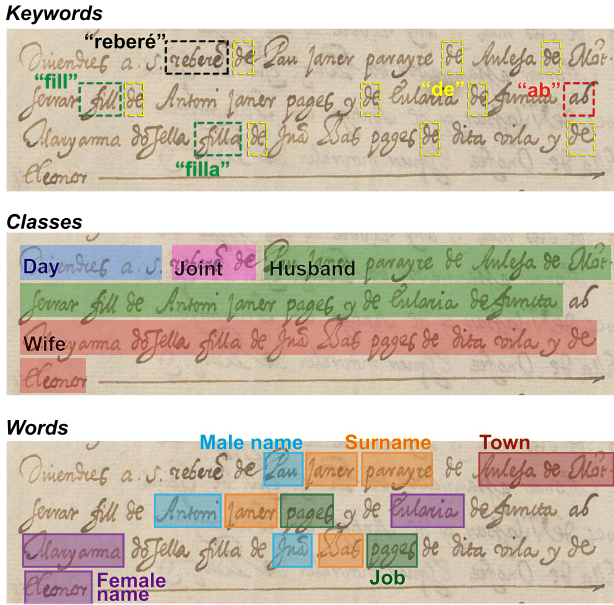 Keywords
"reberé"
Divendres a . 5. reberé de Pau Janer parayre de Aulesa de Mõt-
"fill" "de" "ab"
serrat fill de Antoni Janer pages y de Eularia de functa ab
Maryanna dõsella filla de Juã Bas pages de dita vila y de
"filla"
Eleonor
Classes
Day Joint Husband
Divendres a . 5. reberé de Pau Janer parayre de Aulesa de Mõt-
serrat fill de Antoni Janer pages y de Eularia de functa ab
Wife
Maryanna dõsella filla de Juã Bas pages de dita vila y de
Eleonor
Words
Male name Surname Town
Divendres a . 5. reberé de Pau Janer parayre de Aulesa de Mõt-
serrat fill de Antoni Janer pages y de Eularia de functa ab
Maryanna dõsella filla de Juã Bas pages de dita vila y de
Job
Eleonor Female name